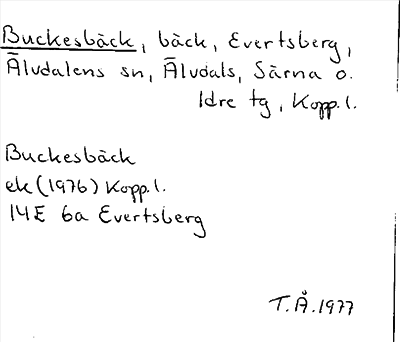 Buckesbäck, bäck, Evertsberg,
Älvdalens sn, Älvdals, Särna o.
Idre tg, Kopp.l.
Buckesbäck
ek (1976) Kopp.l.
14E 6a Evertsberg
T.Å.1977